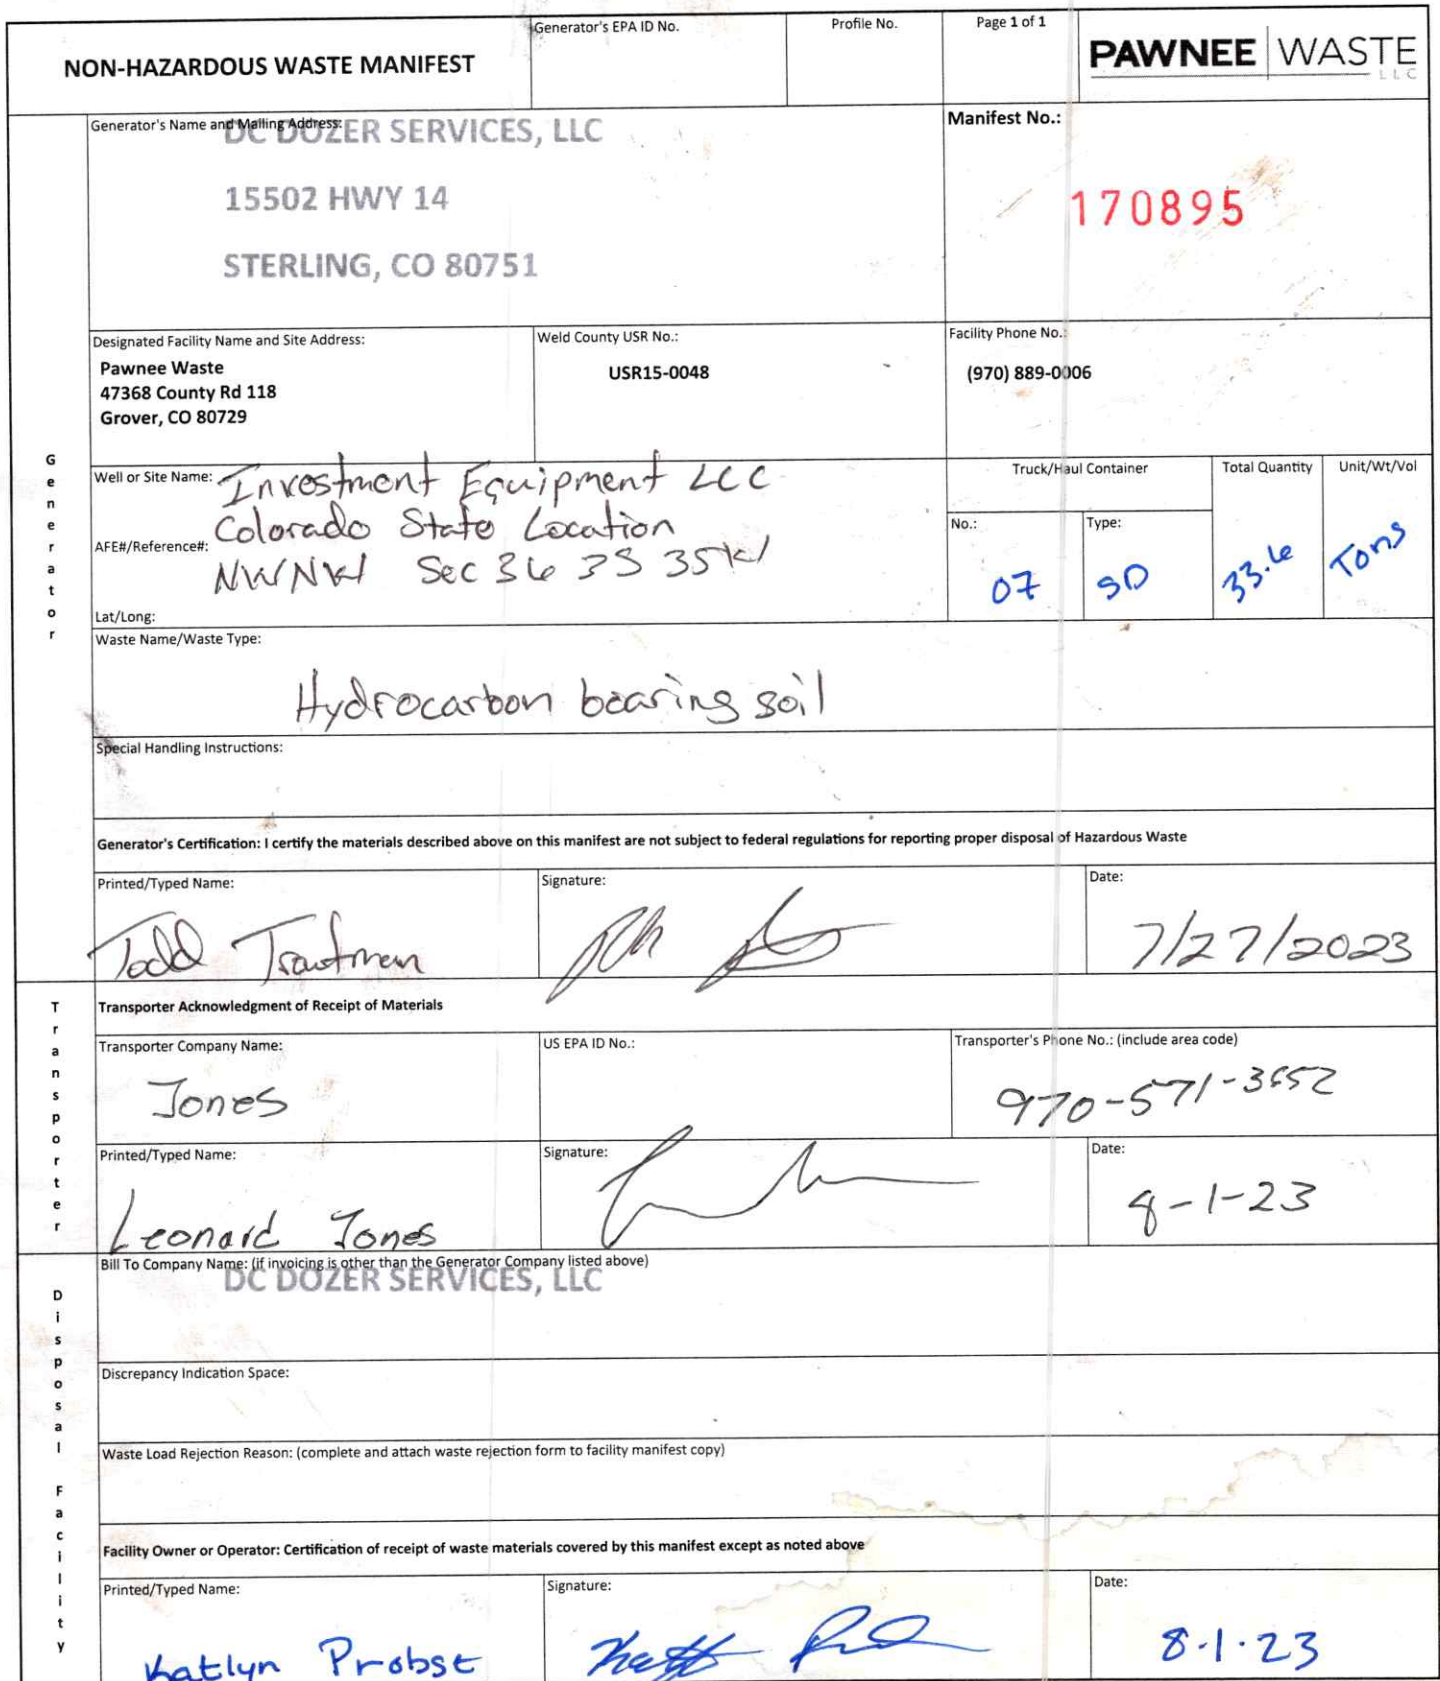 NON-HAZARDOUS WASTE MANIFEST
Generator's EPA ID No.
Profile No.
Page 1 of 1
PAWNEE WASTE
LLC
Generator's Name and Mailing Address:
DC DOZER SERVICES, LLC
15502 HWY 14
STERLING, CO 80751
Manifest No.:
170895
Designated Facility Name and Site Address:
Pawnee Waste
47368 County Rd 118
Grover, CO 80729
Weld County USR No.:
USR15-0048
Facility Phone No.:
(970) 889-0006
Generator
Well or Site Name: Investment Equipment LLC
Colorado State Location
AFE#/Reference#: NWNW Sec 36 3S 35W
Lat/Long:
Truck/Haul Container
No.:
07
Type:
SD
Total Quantity
33.6
Unit/Wt/Vol
Tons
Waste Name/Waste Type:
Hydrocarbon bearing soil
Special Handling Instructions:
Generator's Certification: I certify the materials described above on this manifest are not subject to federal regulations for reporting proper disposal of Hazardous Waste
Printed/Typed Name:
Todd Trautman
Signature:
Date:
7/27/2023
Transporter
Transporter Acknowledgment of Receipt of Materials
Transporter Company Name:
Jones
US EPA ID No.:
Transporter's Phone No.: (include area code)
970-571-3652
Printed/Typed Name:
Leonard Jones
Signature:
Date:
8-1-23
Disposal Facility
Bill To Company Name: (if invoicing is other than the Generator Company listed above)
DC DOZER SERVICES, LLC
Discrepancy Indication Space:
Waste Load Rejection Reason: (complete and attach waste rejection form to facility manifest copy)
Facility Owner or Operator: Certification of receipt of waste materials covered by this manifest except as noted above
Printed/Typed Name:
Katlyn Probst
Signature:
Date:
8.1.23